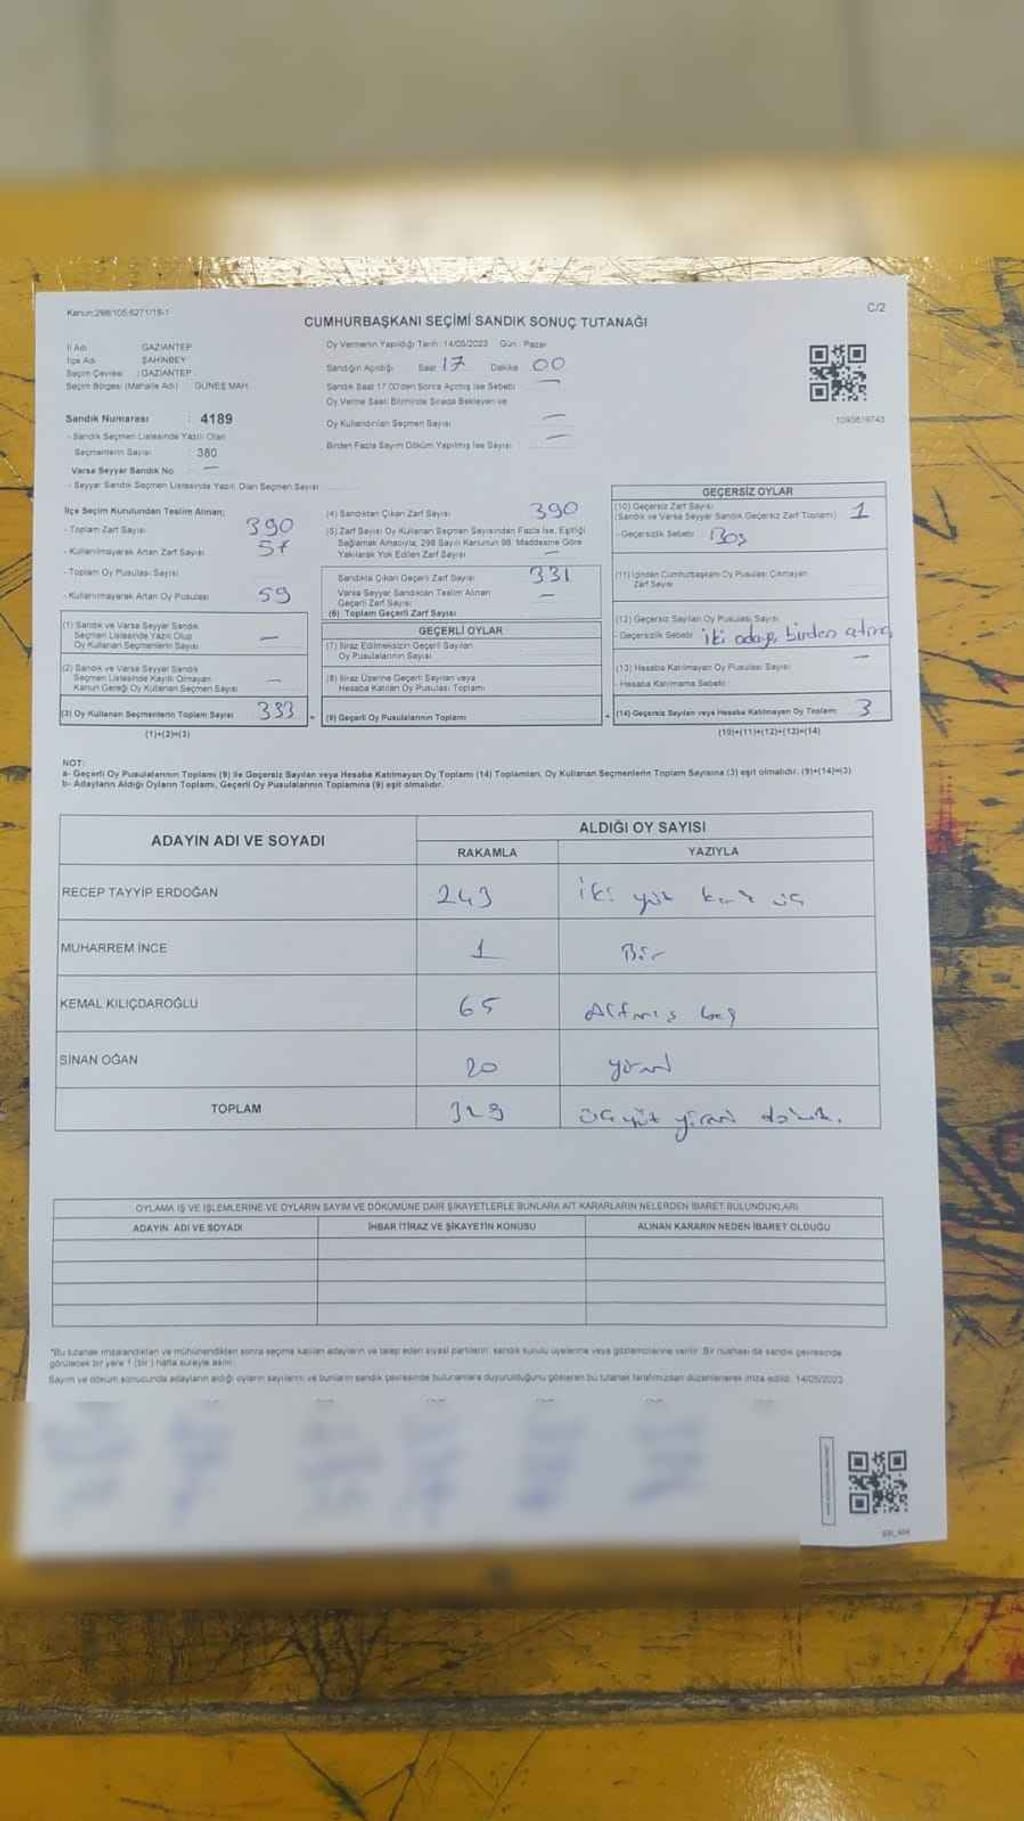 Kanun:298/105,6271/18-1
C/2
CUMHURBAŞKANI SEÇİMİ SANDIK SONUÇ TUTANAĞI
İl Adı GAZİANTEP
İlçe Adı ŞAHİNBEY
Seçim Çevresi : GAZİANTEP
Seçim Bölgesi (Mahalle Adı) GÜNEŞ MAH.
Oy Vermenin Yapıldığı Tarih : 14/05/2023 Gün : Pazar
Sandığın Açıldığı Saat 17 Dakika 00
Sandık Saat 17.00'den Sonra Açılmış İse Sebebi —
Oy Verme Saati Bitiminde Sırada Bekleyen ve
Oy Kullandırılan Seçmen Sayısı —
Birden Fazla Sayım Döküm Yapılmış İse Sayısı —
Sandık Numarası : 4189
- Sandık Seçmen Listesinde Yazılı Olan
Seçmenlerin Sayısı 380
Varsa Seyyar Sandık No —
- Seyyar Sandık Seçmen Listesinde Yazılı Olan Seçmen Sayısı
İlçe Seçim Kurulundan Teslim Alınan;
- Toplam Zarf Sayısı 390
- Kullanılmayarak Artan Zarf Sayısı 57
- Toplam Oy Pusulası Sayısı
- Kullanılmayarak Artan Oy Pusulası 59
(1) Sandık ve Varsa Seyyar Sandık
Seçmen Listesinde Yazılı Olup
Oy Kullanan Seçmenlerin Sayısı —
(2) Sandık ve Varsa Seyyar Sandık
Seçmen Listesinde Kayıtlı Olmayan
Kanun Gereği Oy Kullanan Seçmen Sayısı —
(3) Oy Kullanan Seçmenlerin Toplam Sayısı 333
(1)+(2)=(3)
(4) Sandıktan Çıkan Zarf Sayısı 390
(5) Zarf Sayısı Oy Kullanan Seçmen Sayısından Fazla İse, Eşitliği
Sağlamak Amacıyla; 298 Sayılı Kanunun 98. Maddesine Göre
Yakılarak Yok Edilen Zarf Sayısı —
Sandıkta Çıkan Geçerli Zarf Sayısı 331
Varsa Seyyar Sandıktan Teslim Alınan
Geçerli Zarf Sayısı —
(6) Toplam Geçerli Zarf Sayısı
GEÇERLİ OYLAR
(7) İtiraz Edilmeksizin Geçerli Sayılan
Oy Pusulalarının Sayısı
(8) İtiraz Üzerine Geçerli Sayılan veya
Hesaba Katılan Oy Pusulası Toplamı
(9) Geçerli Oy Pusulalarının Toplamı
GEÇERSİZ OYLAR
(10) Geçersiz Zarf Sayısı
(Sandık ve Varsa Seyyar Sandık Geçersiz Zarf Toplamı) 1
- Geçersizlik Sebebi Boş
(11) İçinden Cumhurbaşkanı Oy Pusulası Çıkmayan
Zarf Sayısı
(12) Geçersiz Sayılan Oy Pusulası Sayısı
- Geçersizlik Sebebi iki adaya birden
(13) Hesaba Katılmayan Oy Pusulası Sayısı —
- Hesaba Katılmama Sebebi
(14) Geçersiz Sayılan veya Hesaba Katılmayan Oy Toplamı 3
(10)+(11)+(12)+(13)=(14)
NOT:
a- Geçerli Oy Pusulalarının Toplamı (9) ile Geçersiz Sayılan veya Hesaba Katılmayan Oy Toplamı (14) Toplamları, Oy Kullanan Seçmenlerin Toplam Sayısına (3) eşit olmalıdır. (9)+(14)=(3)
b- Adayların Aldığı Oyların Toplamı, Geçerli Oy Pusulalarının Toplamına (9) eşit olmalıdır.
ADAYIN ADI VE SOYADI ALDIĞI OY SAYISI
RAKAMLA YAZIYLA
RECEP TAYYİP ERDOĞAN 243 iki yüz kırk üç
MUHARREM İNCE 1 Bir
KEMAL KILIÇDAROĞLU 65 Altmış beş
SİNAN OĞAN 20 yirmi
TOPLAM 329 üçyüz yirmi dokuz.
OYLAMA İŞ VE İŞLEMLERİNE VE OYLARIN SAYIM VE DÖKÜMÜNE DAİR ŞİKAYETLERLE BUNLARA AİT KARARLARIN NELERDEN İBARET BULUNDUKLARI
ADAYIN ADI VE SOYADI İHBAR İTİRAZ VE ŞİKAYETİN KONUSU ALINAN KARARIN NEDEN İBARET OLDUĞU
*Bu tutanak imzalandıktan ve mühürlendikten sonra seçime katılan adayların ve talep eden siyasi partilerin sandık kurulu üyelerine veya gözlemcilerine verilir. Bir nüshası da sandık çevresinde
görülecek bir yere 1 (bir) hafta süreyle asılır.
Sayım ve döküm sonucunda adayların aldığı oyların sayılarını ve bunların sandık çevresinde bulunanlara duyurulduğunu gösteren bu tutanak tarafımızdan düzenlenerek imza edildi. 14/05/2023